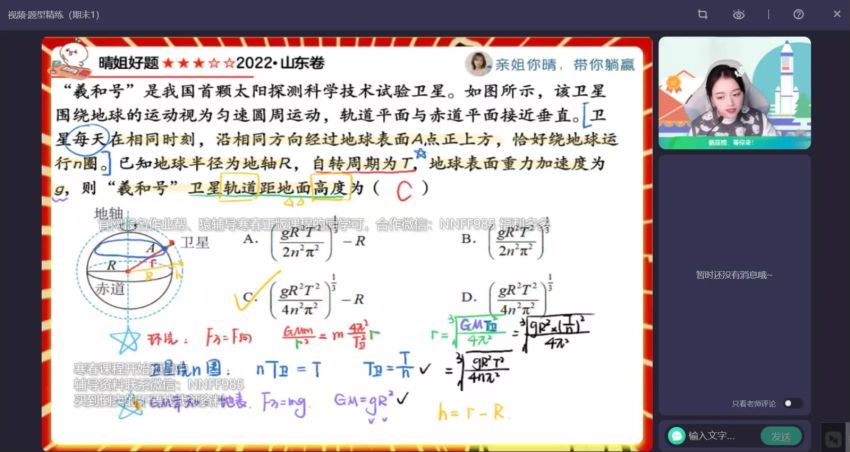 视频·题型精练（期末1）
晴姐好题 ★★★☆☆2022·山东卷
亲姐你晴，带你躺赢
“羲和号”是我国首颗太阳探测科学技术试验卫星。如图所示，该卫星
围绕地球的运动视为匀速圆周运动，轨道平面与赤道平面接近垂直。卫
星每天在相同时刻，沿相同方向经过地球表面A点正上方，恰好绕地球运
行n圈。已知地球半径为地轴R，自转周期为T，地球表面重力加速度为
g，则“羲和号”卫星轨道距地面高度为（ C ）
合作微信：NNFF985
地轴
A
卫星
R
r
R
h
赤道
A. (gR²T²/2n²π²)^(1/3) − R
B. (gR²T²/2n²π²)^(1/3)
C. (gR²T²/4n²π²)^(1/3) − R
D. (gR²T²/4n²π²)^(1/3)
环绕：F万=F向 GMm/r²=m 4π²/T卫² r
r=³√(GMT卫²/4π²)=³√(gR²×(T/n)²/4π²)
卫星绕n圈：nT卫=T T卫=T/n ✓
=³√(gR²T²/4nπ²)
地表：F万=mg GM=gR² ✓
h=r−R.
寒春课程开始
辅导资料联系微信：NNFF985
暂时还没有消息哦~
只看老师评论
输入文字...
发送